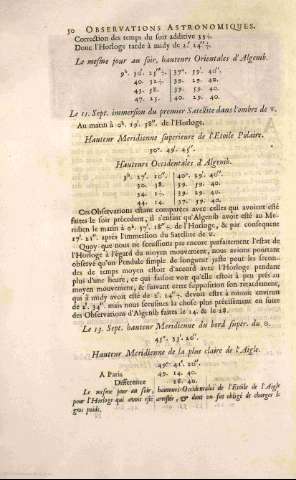 50 OBSERVATIONS ASTRONOMIQUES.
Correction des temps du soir additive 33½.
Donc l'Horloge tarde à midy de 2'. 14"½.
Le mesme jour au soir, hauteurs Orientales d'Algenib.
39°. 40'.
40. 32½. 39. 29. 40.
43. 58. 39. 59. 40.
47. 23. 40. 29. 40.
Le 13. Sept. immersion du premier Satellite dans l'ombre de
Au matin à 0h. 19'. 58". de l'Horloge.
Hauteur Meridienne superieure de l'Etoile Polaire.
50°. 49'. 45".
Hauteurs Occidentales d'Algenib.
3h. 27'. 20". 40°. 59'. 40".
30. 38. 39. 59. 40.
34. 1. 39. 29. 40.
44. 14. 37. 59. 40.
Ces Observations estant comparées avec celles qui avoient esté
faites le soir précedent, il s'ensuit qu'Algenib avoit esté au Me-
ridien le matin à 0h. 37'. 18"½. de l'Horloge, & par consequent
17'. 21". après l'immersion du Satellite de
Quoy-que nous ne sceussions pas encore parfaitement l'estat de
l'Horloge à l'égard du moyen mouvement, nous avions pourtant
observé qu'un Pendule simple de longueur juste pour les secon-
des de temps moyen estoit d'accord avec l'Horloge pendant
plus d'une heure, ce qui faisoit voir qu'elle estoit à peu près au
moyen mouvement, & suivant cette supposition son retardement,
qui à midy avoit esté de 2'. 14"½. devoit estre à minuit environ
de 2'. 34". mais nous sceusmes la chose plus précisement en suite
des Observations d'Algenib faites le 14. & le 28.
Le 13. Sept. hauteur Meridienne du bord super. du
45°. 33'. 20".
Hauteur Meridienne de la plus claire de l'Aigle.
49°. 41'. 20".
A Paris 49. 14. 40.
Difference 26. 40.
Le mesme jour au soir, hauteurs Occidentales de l'Etoile de l'Aigle
pour l'Horloge qui avoit esté arrestée, & dont on fut obligé de changer le
gros poids.